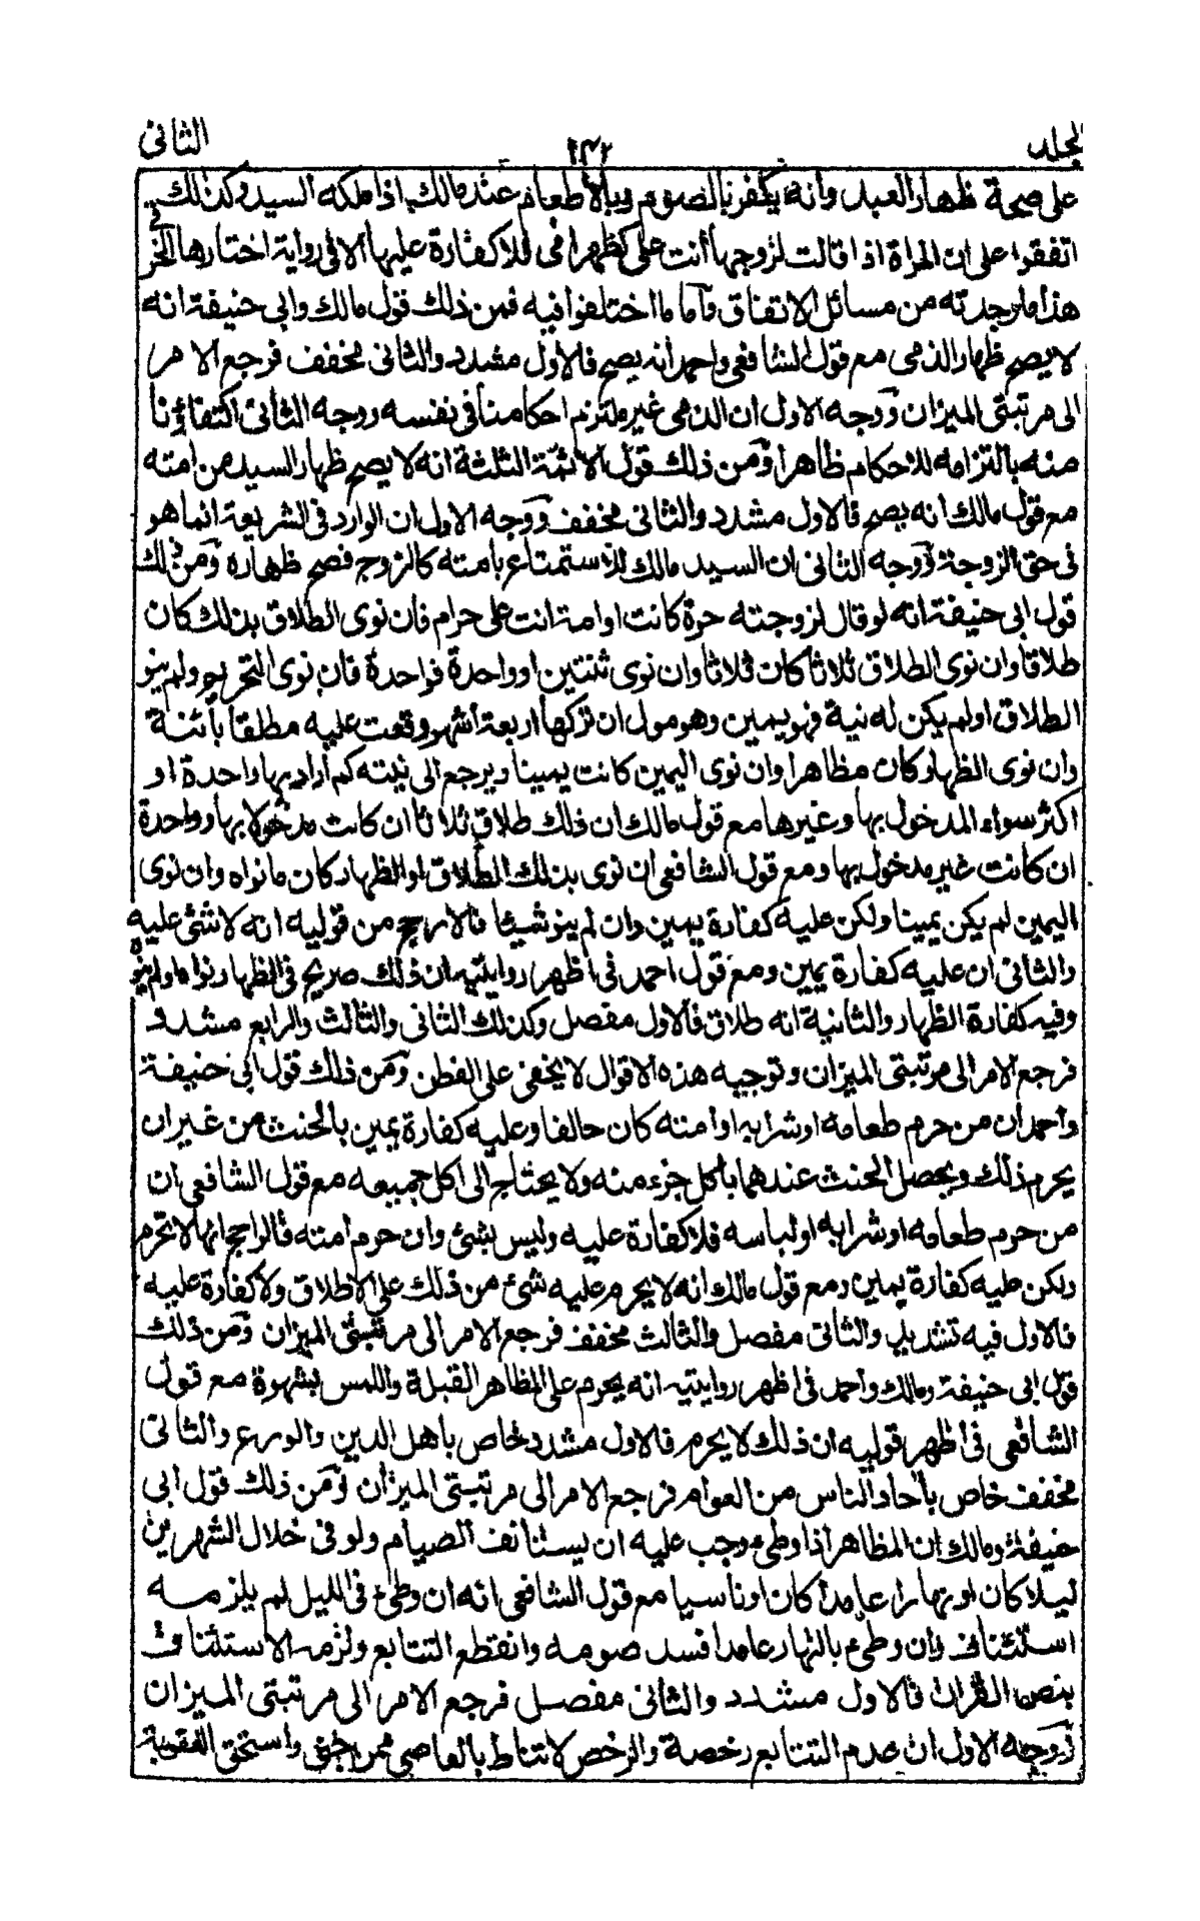 المجلد ١٤٢ الثانى
على صحة ظهار العبد وانه يكفر بالصوم وبالاطعام عند مالك اذا ملكه السيد وكذلك
اتفقوا على ان المراة اذا قالت لزوجها انت على كظهر امى فلا كفارة عليها الا فى رواية اختارها الخرقى
هذا ما وجدته من مسائل الاتفاق واما ما اختلفوا فيه فمن ذلك قول مالك وابى حنيفة انه
لا يصح ظهار الذمى مع قول الشافعى واحمد انه يصح فالاول مشدد والثانى مخفف فرجع الامر
الى مرتبتى الميزان ووجه الاول ان الذمى غير ملتزم احكامنا فى نفسه ووجه الثانى اكتفاؤنا
منه بالتزامه للاحكام ظاهرا ومن ذلك قول الائمة الثلثة انه لا يصح ظهار السيد من امته
مع قول مالك انه يصح فالاول مشدد والثانى مخفف ووجه الاول ان الوارد فى الشريعة انما هو
فى حق الزوجة ووجه الثانى ان السيد مالك للاستمتاع بامته كالزوج فصح ظهاره ومن ذلك
قول ابى حنيفة انه لو قال لزوجته حرة كانت او امة انت على حرام فان نوى الطلاق بذلك كان
طلاقا وان نوى الطلاق ثلاثا كان ثلاثا وان نوى ثنتين او واحدة فواحدة فان نوى التحريم ولم ينو
الطلاق او لم يكن له نية فهو يمين وهو مول ان تركها اربعة اشهر وقعت عليه مطلقا بائنة
وان نوى الظهار كان مظاهرا وان نوى اليمين كانت يمينا ويرجع الى نيته كم اراد بها واحدة او
اكثر سواء المدخول بها وغيرها مع قول مالك ان ذلك طلاق ثلاثا ان كانت مدخولا بها وواحدة
ان كانت غير مدخول بها ومع قول الشافعى ان نوى بذلك الطلاق او الظهار كان ما نواه وان نوى
اليمين لم يكن يمينا ولكن عليه كفارة يمين وان لم ينو شيئا فالارجح من قوليه انه لا شئ عليه
والثانى ان عليه كفارة يمين ومع قول احمد فى اظهر روايتيه ان ذلك صريح فى الظهار نواه او لم ينو
وفيه كفارة الظهار والثانية انه طلاق فالاول مفصل وكذلك الثانى والثالث والرابع مشدد
فرجع الامر الى مرتبتى الميزان وتوجيه هذه الاقوال لا يخفى على الفطن ومن ذلك قول ابى حنيفة
واحمد ان من حرم طعامه او شرابه او امته كان حالفا وعليه كفارة يمين بالحنث من غير ان
يحرم ذلك ويحصل الحنث عندهما باكل جزء منه ولا يحتاج الى اكل جميعه مع قول الشافعى ان
من حرم طعامه او شرابه او لباسه فلا كفارة عليه وليس بشئ وان حرم امته فالراجح انها لا تحرم
ولكن عليه كفارة يمين ومع قول مالك انه لا يحرم عليه شئ من ذلك على الاطلاق ولا كفارة عليه
فالاول فيه تشديد والثانى مفصل والثالث مخفف فرجع الامر الى مرتبتى الميزان ومن ذلك
قول ابى حنيفة ومالك واحمد فى اظهر روايتيه انه يحرم على المظاهر القبلة واللمس بشهوة مع قول
الشافعى فى اظهر قوليه ان ذلك لا يحرم فالاول مشدد خاص باهل الدين والورع والثانى
مخفف خاص باحاد الناس من العوام فرجع الامر الى مرتبتى الميزان ومن ذلك قول ابى
حنيفة ومالك ان المظاهر اذا وطئ وجب عليه ان يستانف الصيام ولو فى خلال الشهرين
ليلا كان او نهارا عامدا كان او ناسيا مع قول الشافعى انه ان وطئ فى الليل لم يلزمه
استئناف وان وطئ بالنهار عامدا فسد صومه وانقطع التتابع ولزمه الاستئناف
بنص القران فالاول مشدد والثانى مفصل فرجع الامر الى مرتبتى الميزان
ووجه الاول ان عدم التتابع رخصة والرخص لا تناط بالعاصى واستحق العقوبة